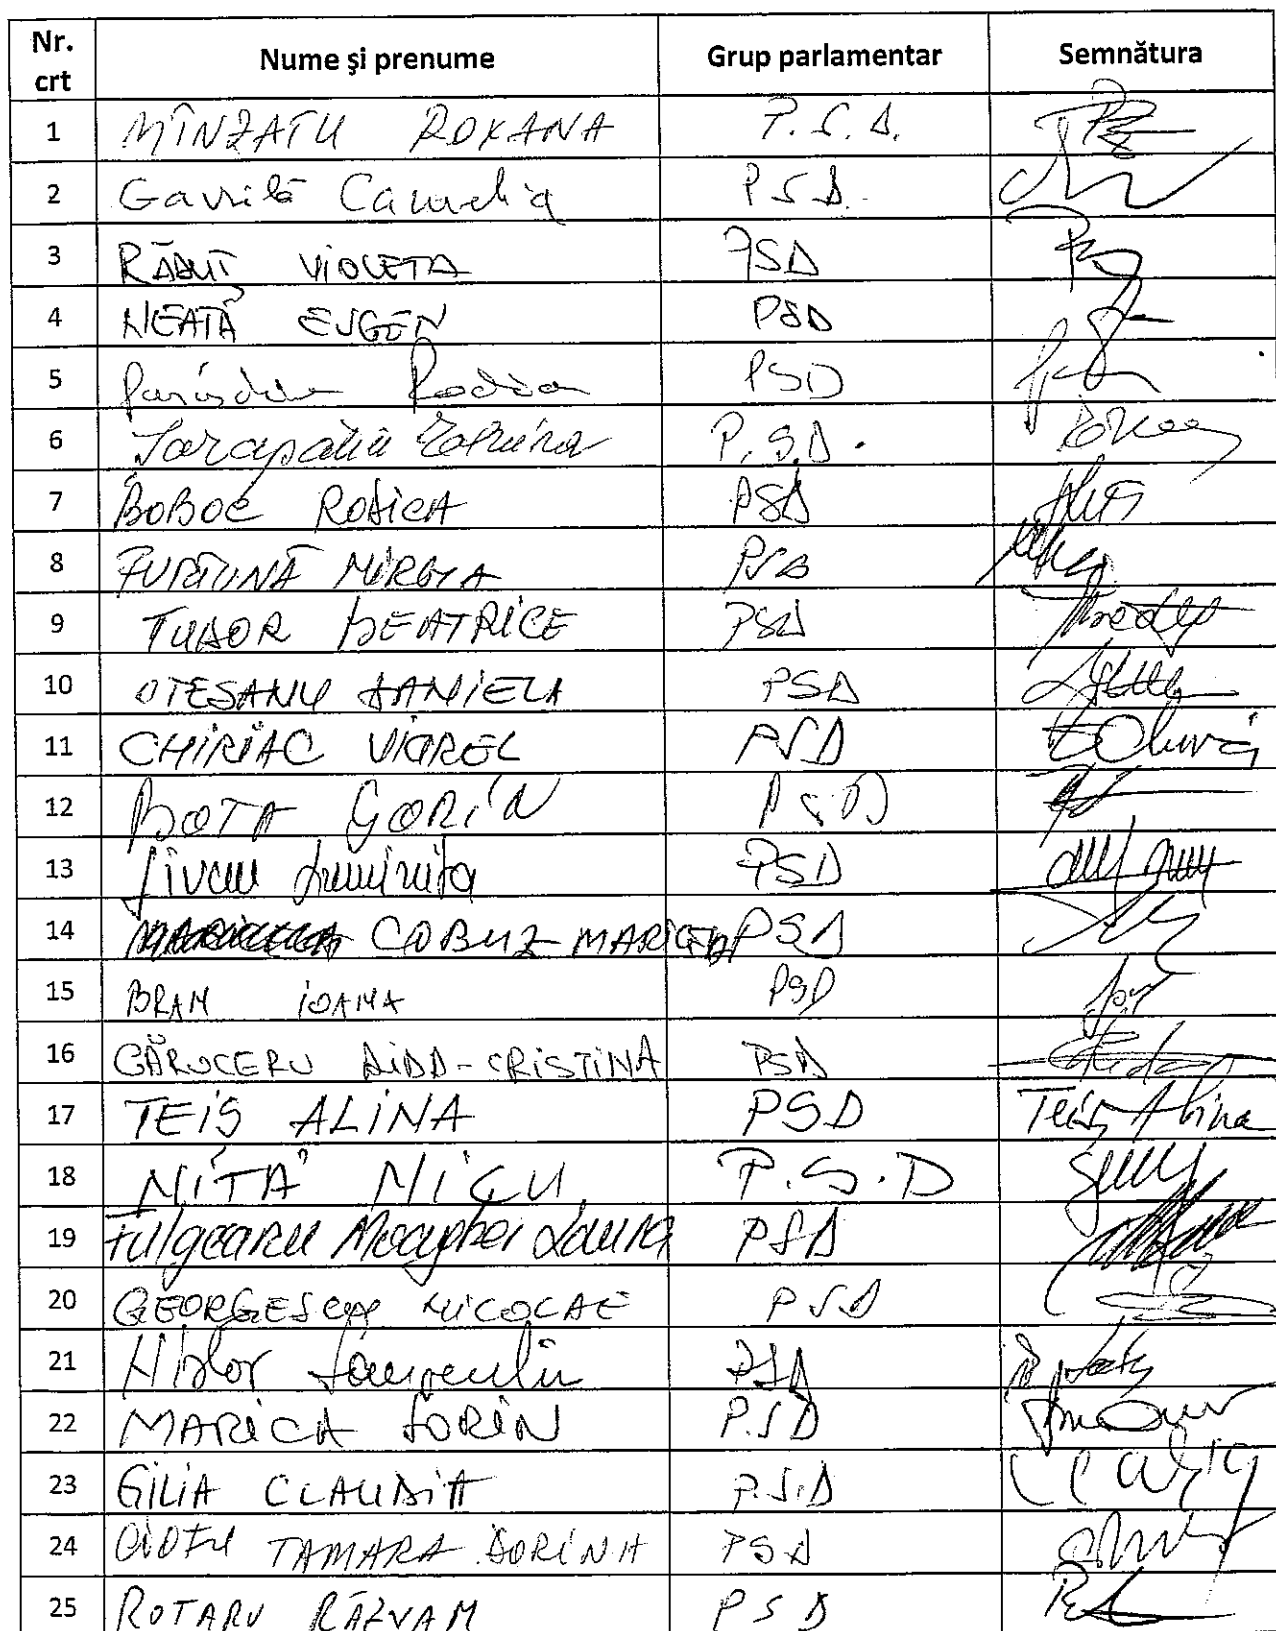 Nr. crt Nume și prenume Grup parlamentar Semnătura
1 MÎNZATU ROXANA P.S.D.
2 Gavrilă Camelia PSD.
3 RĂDUȚ VIOLETA PSD
4 NEAȚĂ EUGEN PSD
5 Paraschiv Rodica PSD
6 P.S.D.
7 BOBOC RODICA PSD
8 FURTUNĂ MIRELA PSD
9 TUDOR BEATRICE PSD
10 OTESANU DANIELA PSD
11 CHIRIAC VIOREL PSD
12 BOTA GORIN PSD
13 Jivan Luminița PSD
14 COBUZ MARICELA PSD
15 BRAN IOANA PSD
16 CĂRUCERU AIDA-CRISTINA PSD
17 TEIȘ ALINA PSD Teiș Alina
18 NIȚĂ NICU P.S.D
19 Fulgeanu Moagher Laura PSD
20 GEORGESCU NICOLAE PSD
21 Nistor Laurențiu PSD
22 MARICA SORIN P.S.D
23 GILIA CLAUDIA P.S.D
24 CIOFU TAMARA DORINA PSD
25 ROTARU RĂZVAN PSD